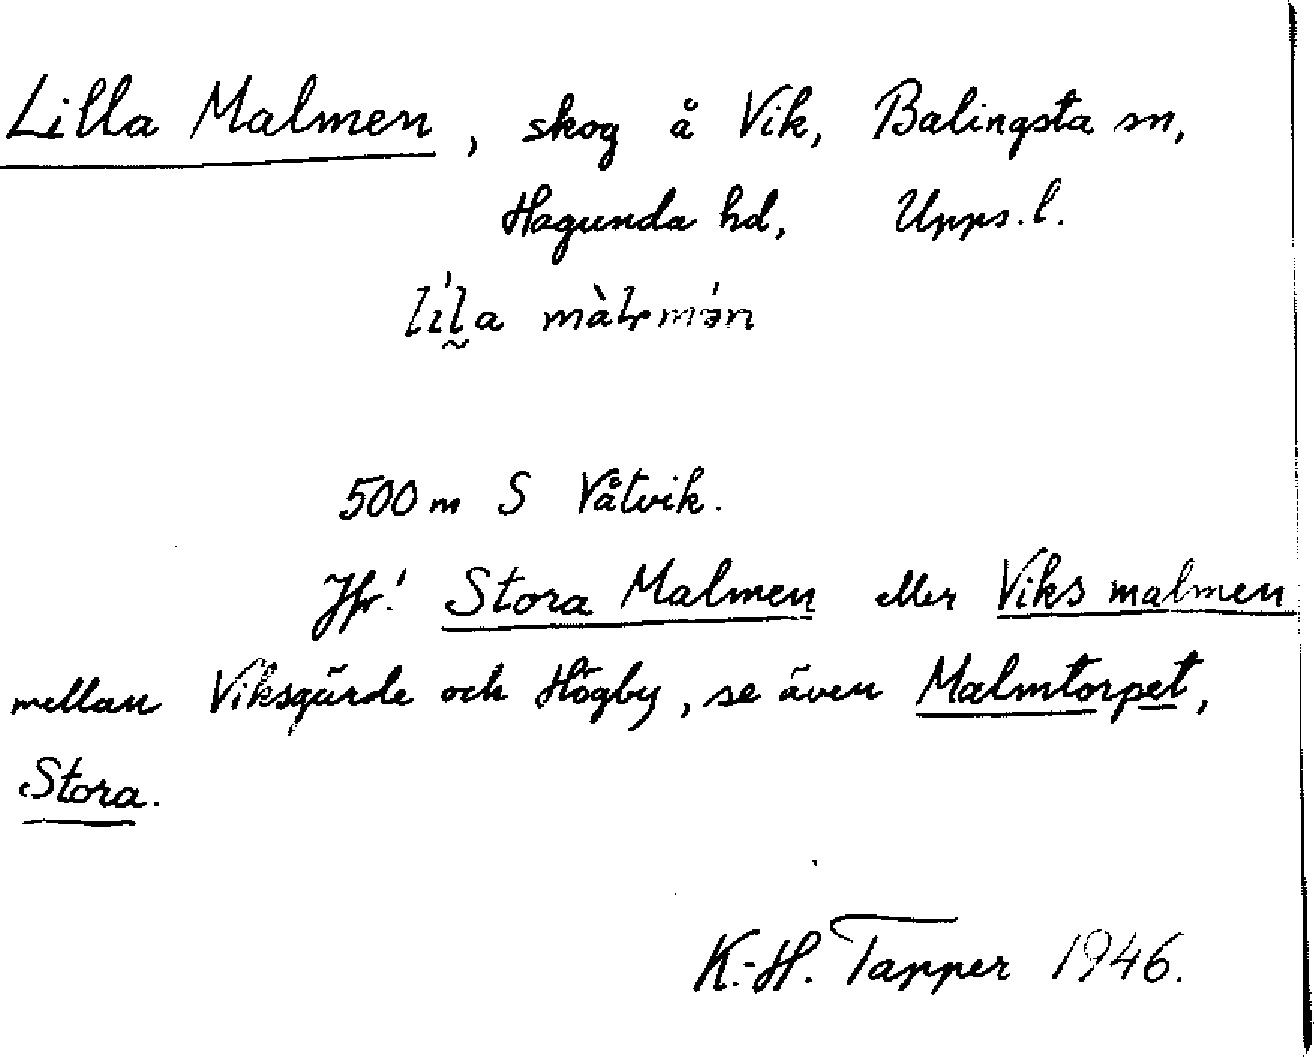 Lilla Malmen, skog å Vik, Balingsta sn,
Hagunda hd, Upps. l.
500 m S Våtvik.
Jfr! Stora Malmen eller Viks malmen
mellan Viksgärde och Högby, se även Malmtorpet,
Stora.
K.-H. Tapper 1946.